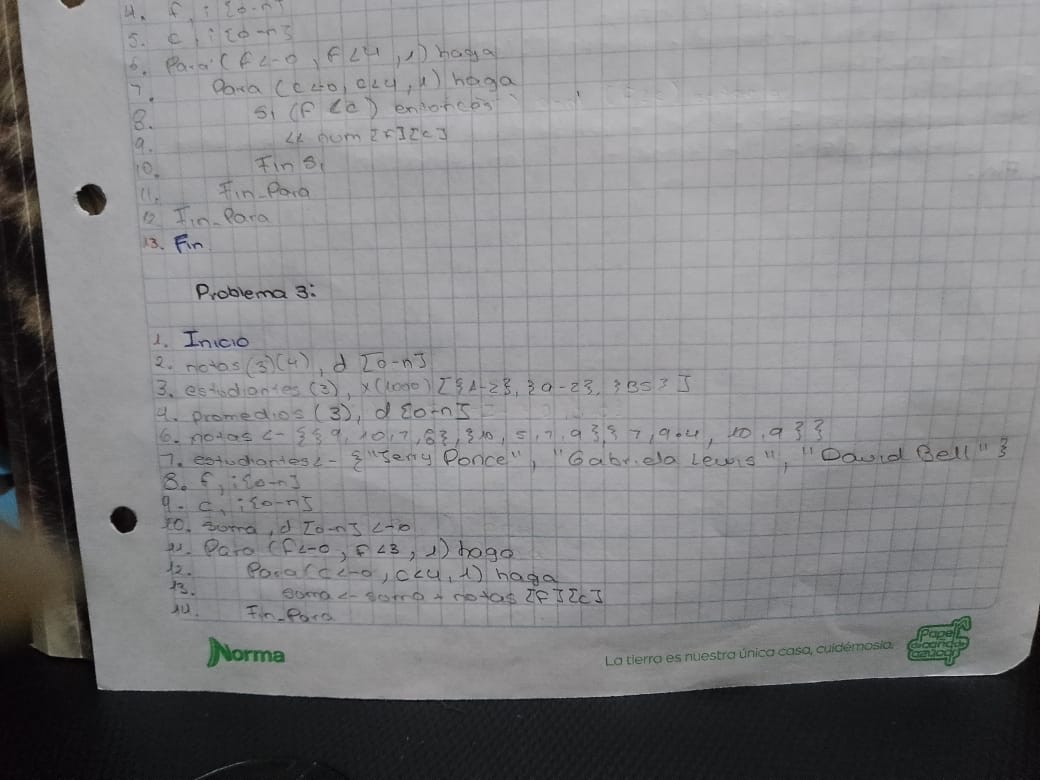 4. f, i [0-n]
5. c, i [0-n]
6. Para (f <-0, f <4, 1) haga
7. Para (c <-0, c<4, 1) haga
8. Si (f <c) entonces
9. << num [f][c]
10. Fin Si
11. Fin-Para
12 Fin-Para
13. Fin
Problema 3:
1. Inicio
2. notas (3)(4), d [0-n]
3. estudiantes (3), x(1000) [{A-Z}, {a-z}, {BS}]
4. promedios (3), d[0-n]
6. notas <- {{9, 10, 7, 8}, {10, 5, 7, 9}{7, 9.4, 10, 9}}
7. estudiantes <- {"Jerry Ponce", "Gabriela Lewis", "David Bell"}
8. f, i[0-n]
9. c, i[0-n]
10. suma, d [0-n] <-0
11. Para (f<-0, f<3, 1) haga
12. Para (c<-0, c<4, 1) haga
13. suma <- suma + notas [f][c]
14. Fin-Para
Norma
La tierra es nuestra única casa, cuidémosla.
Papel